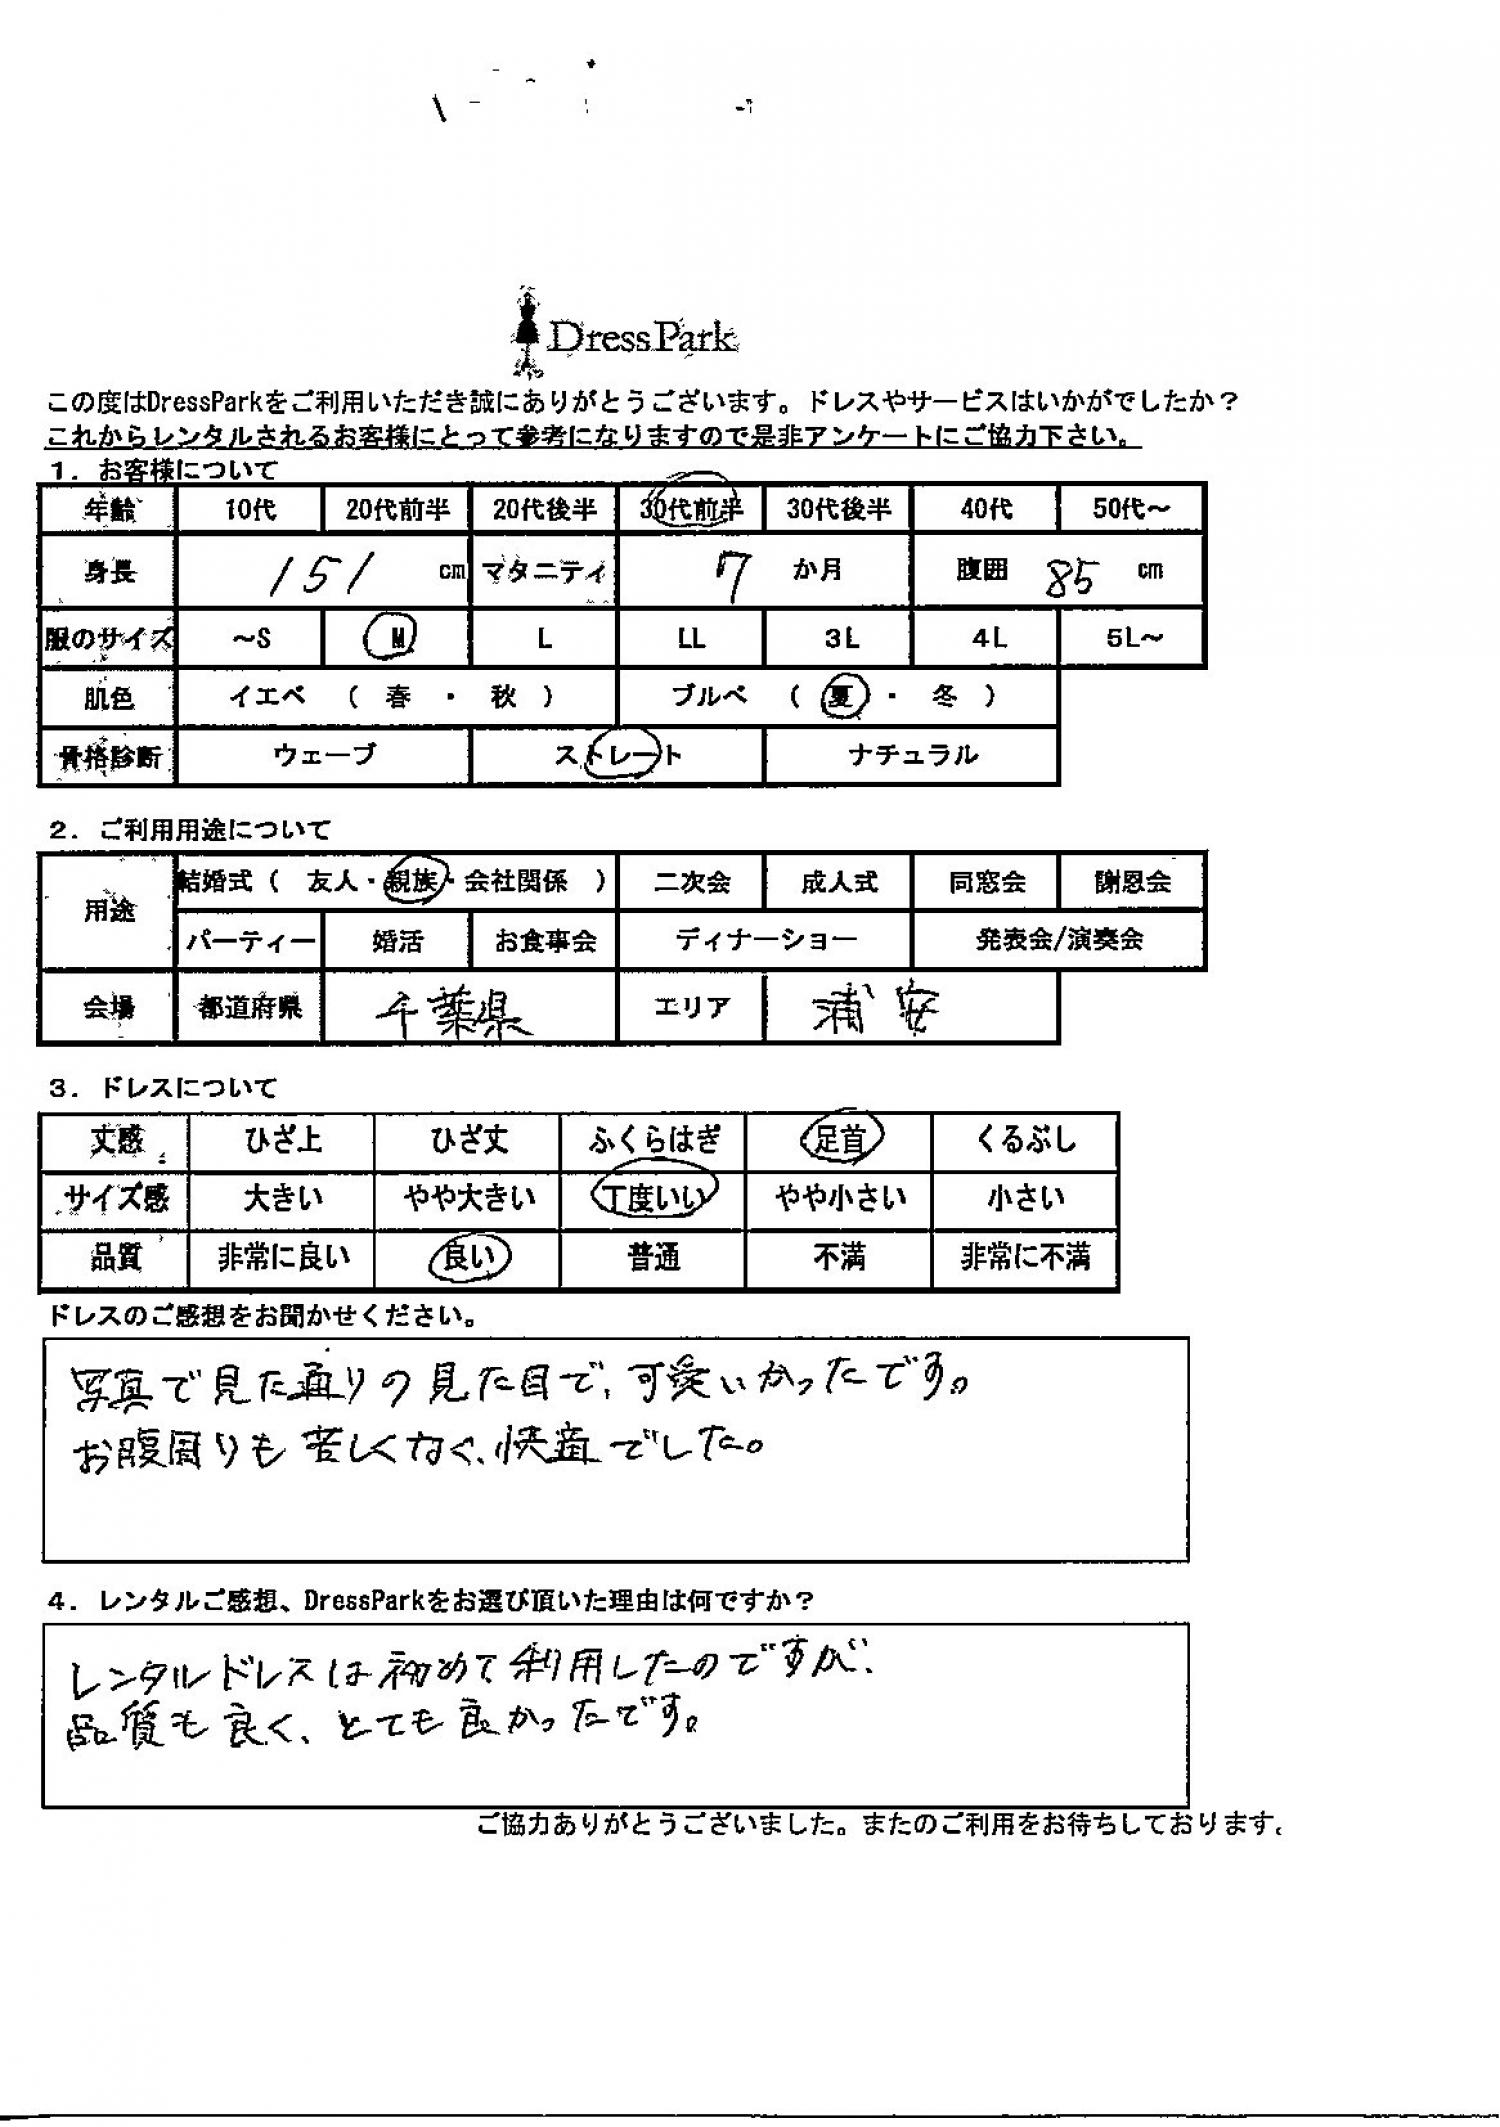 DressPark
この度はDressParkをご利用いただき誠にありがとうございます。ドレスやサービスはいかがでしたか？
これからレンタルされるお客様にとって参考になりますので是非アンケートにご協力下さい。
1. お客様について
年齢 10代 20代前半 20代後半 30代前半 30代後半 40代 50代～
身長 151 cm マタニティ 7 か月 腹囲 85 cm
服のサイズ ～S M L LL 3L 4L 5L～
肌色 イエベ （ 春 ・ 秋 ） ブルベ （ 夏 ・ 冬 ）
骨格診断 ウェーブ ストレート ナチュラル
2. ご利用用途について
用途 結婚式（ 友人・親族・会社関係 ） 二次会 成人式 同窓会 謝恩会
パーティー 婚活 お食事会 ディナーショー 発表会/演奏会
会場 都道府県 千葉県 エリア 浦安
3. ドレスについて
丈感 ひざ上 ひざ丈 ふくらはぎ 足首 くるぶし
サイズ感 大きい やや大きい 丁度いい やや小さい 小さい
品質 非常に良い 良い 普通 不満 非常に不満
ドレスのご感想をお聞かせください。
写真で見た通りの見た目で、可愛いかったです。
お腹周りも苦しくなく、快適でした。
4. レンタルご感想、DressParkをお選び頂いた理由は何ですか？
レンタルドレスは初めて利用したのですが、
品質も良く、とても良かったです。
ご協力ありがとうございました。またのご利用をお待ちしております。